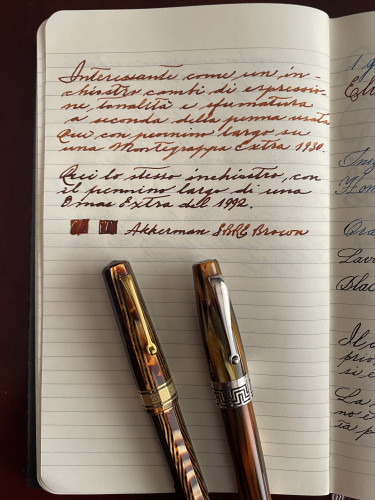 Interessante come un in-
chiostro cambi di espressio-
ne, tonalità e sfumatura
a seconda della penna usata
Qui con pennino largo su
una Montegrappa Extra 1930.
Qui lo stesso inchiostro, con
il pennino largo di una
Omas Extra del 1992.
Akkerman SBRE Brown